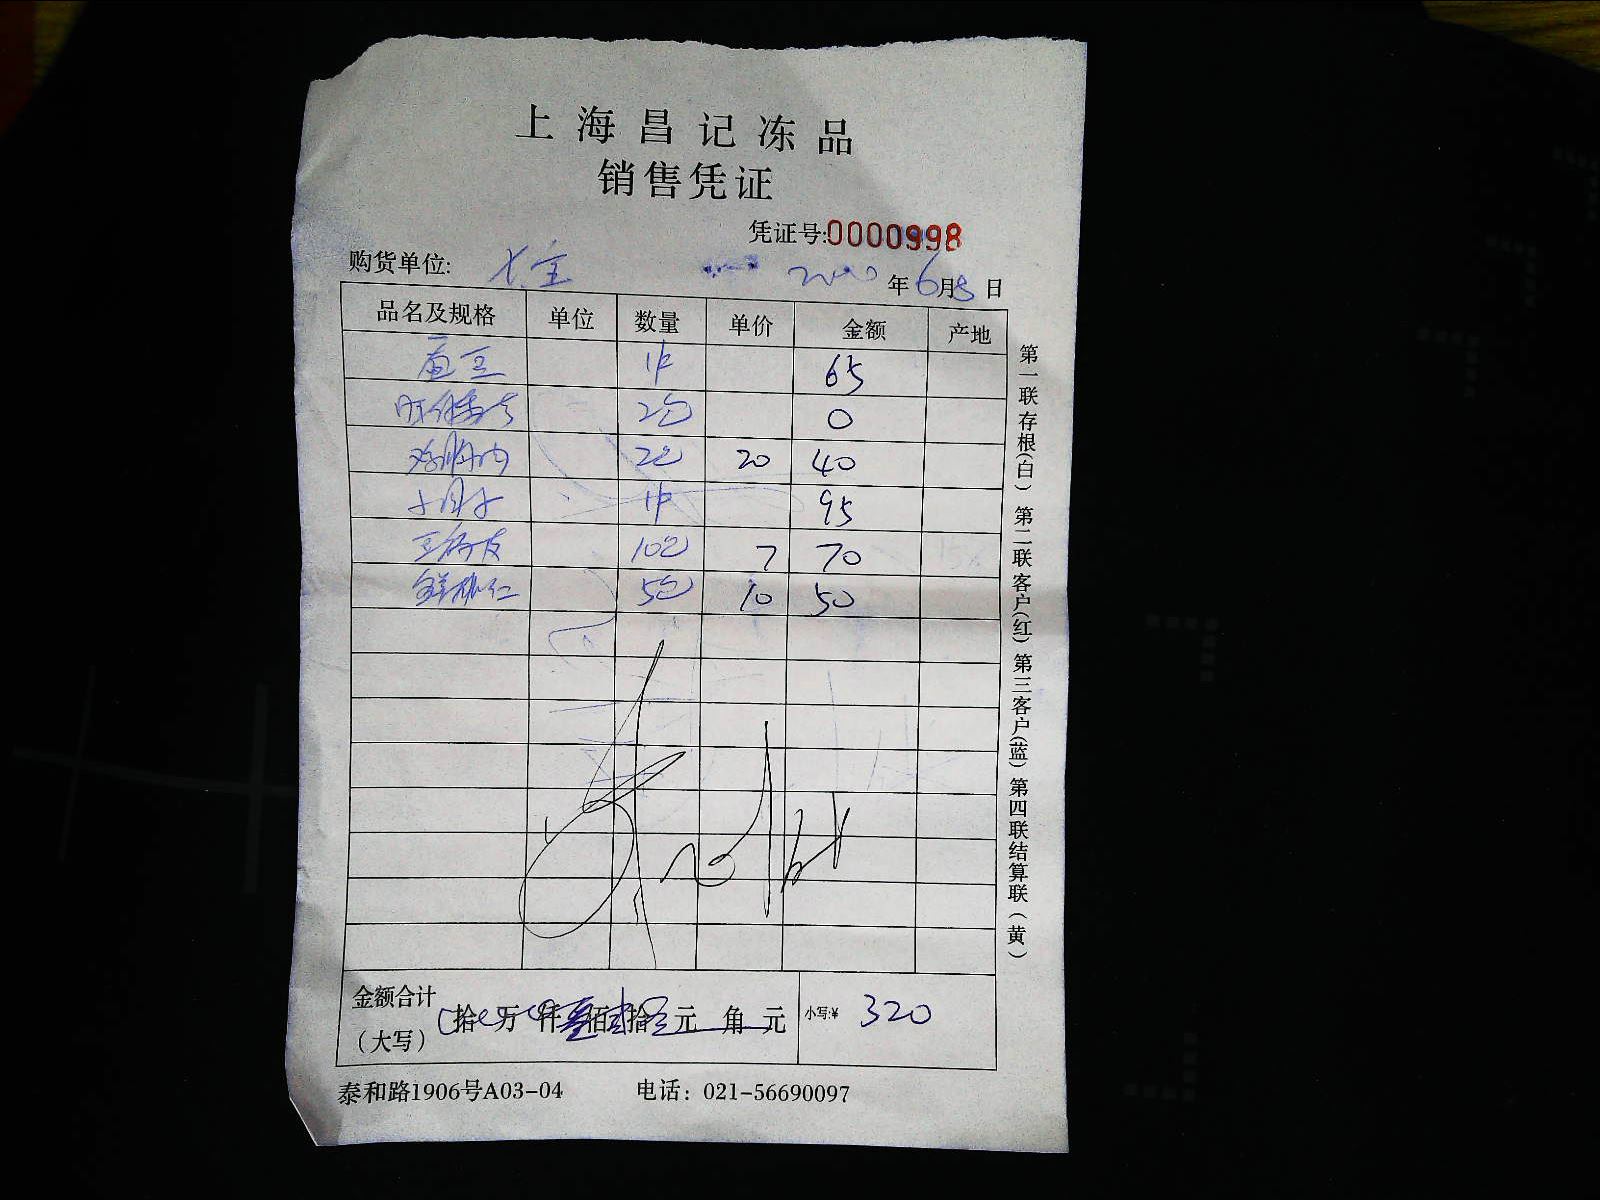 上海昌记冻品
销售凭证
凭证号:0000998
购货单位: 年6月8日
品名及规格 单位 数量 单价 金额 产地
豆 1件 65
2包 0
鸡胸肉 2包 20 40
1件 95
豆腐皮 10包 7 70
鲜桃仁 5包 10 50
金额合计
(大写) 拾 万 仟 佰 拾 元 角 元 小写:¥ 320
泰和路1906号A03-04 电话: 021-56690097
第一联存根(白) 第二联客户(红) 第三客户(蓝) 第四联结算联(黄)